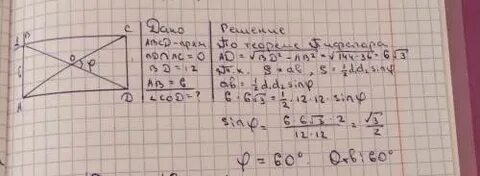 B C
6
О φ
A D
Дано
ABCD-прям
BD∩AC=O
BD=12
AB=6
∠COD=?
Решение
По теореме Пифагора
AD=√BD²-AB²=√144-36=6√3
Т.к. S=ab, S=½d₁d₂sinφ
ab=½d₁d₂sinφ
6·6√3=½·12·12·sinφ
sinφ=6·6√3·2/12·12=√3/2
φ=60° Ответ: 60°